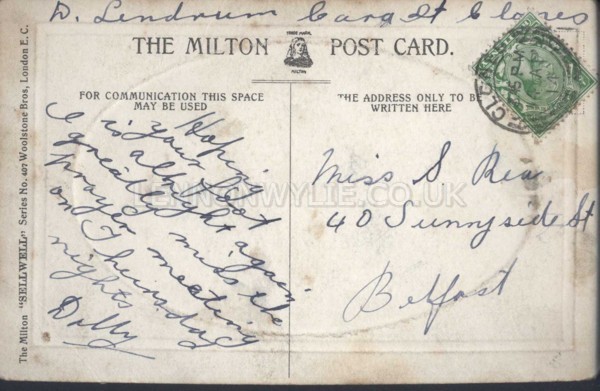 D. Lendrum Carag St Clares
THE MILTON POST CARD.
TRADE MARK
MILTON
FOR COMMUNICATION THIS SPACE
MAY BE USED
THE ADDRESS ONLY TO BE
WRITTEN HERE
Hoping
is your foot
is all right again
I greatly miss the
prayer meeting
on Thursday
nights
Dolly
Miss S. Rea
40 Sunnyside St
Belfast
The Milton "SELLWELL" Series No. 407 Woolstone Bros, London E.C.
LENNONWYLIE.CO.UK